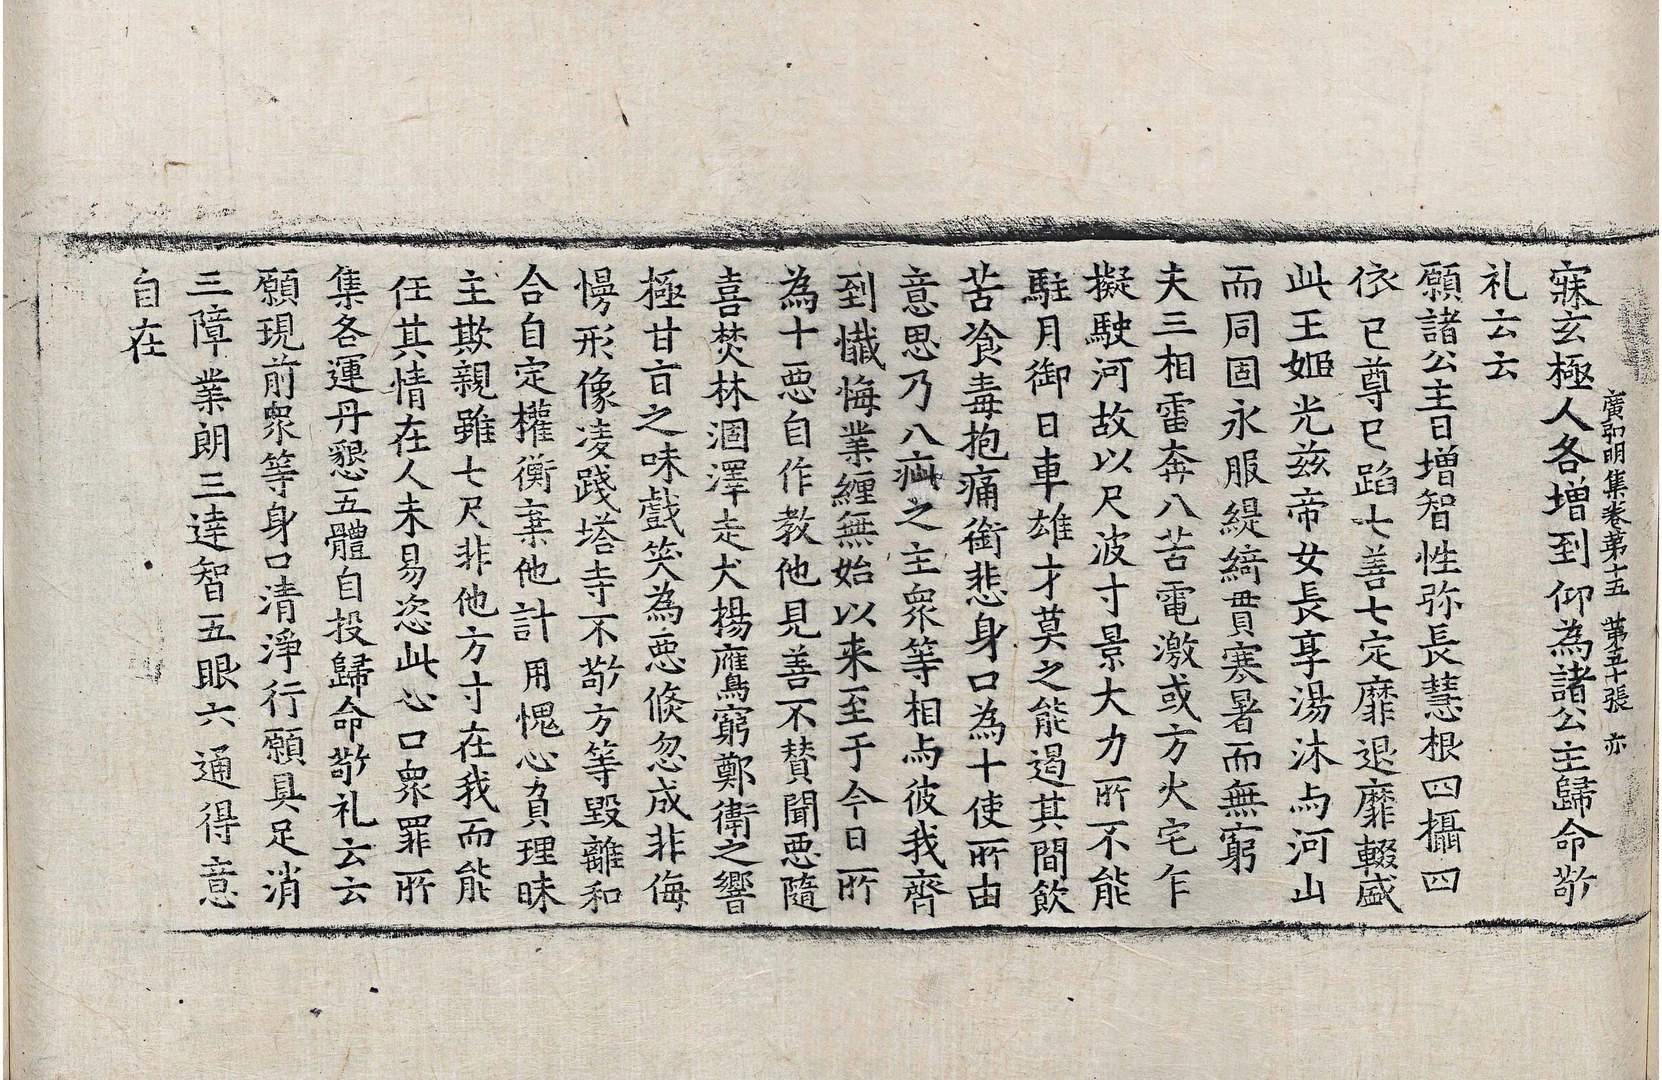 廣弘明集卷第十五　第五十張　亦
寐玄極人各增到仰為諸公主歸命敬
礼云云
願諸公主日增智性弥長慧根四攝四
依已尊已蹈七善七定靡退靡輟盛
此王姬光兹帝女長享湯沐與河山
而同固永服緹綺貫寒暑而無窮
夫三相雷奔八苦電激或方火宅乍
擬駛河故以尺波寸景大力所不能
駐月御日車雄才莫之能遏其間飲
苦飡毒抱痛銜悲身口為十使所由
意思乃八疵之主衆等相與彼我齊
到懴悔業纏無始以来至于今日所
為十惡自作教他見善不賛聞惡隨
喜焚林涸澤走犬揚鷹窮鄭衛之響
極甘旨之味戲笑為惡倐忽成非侮
慢形像凌踐塔寺不敬方等毀離和
合自定權衡棄他計用愧心負理昧
主欺親雖七尺非他方寸在我而能
任其情在人未易恣此心口衆罪所
集各運丹懇五體自投歸命敬礼云云
願現前衆等身口清淨行願具足消
三障業朗三達智五眼六通得意
自在